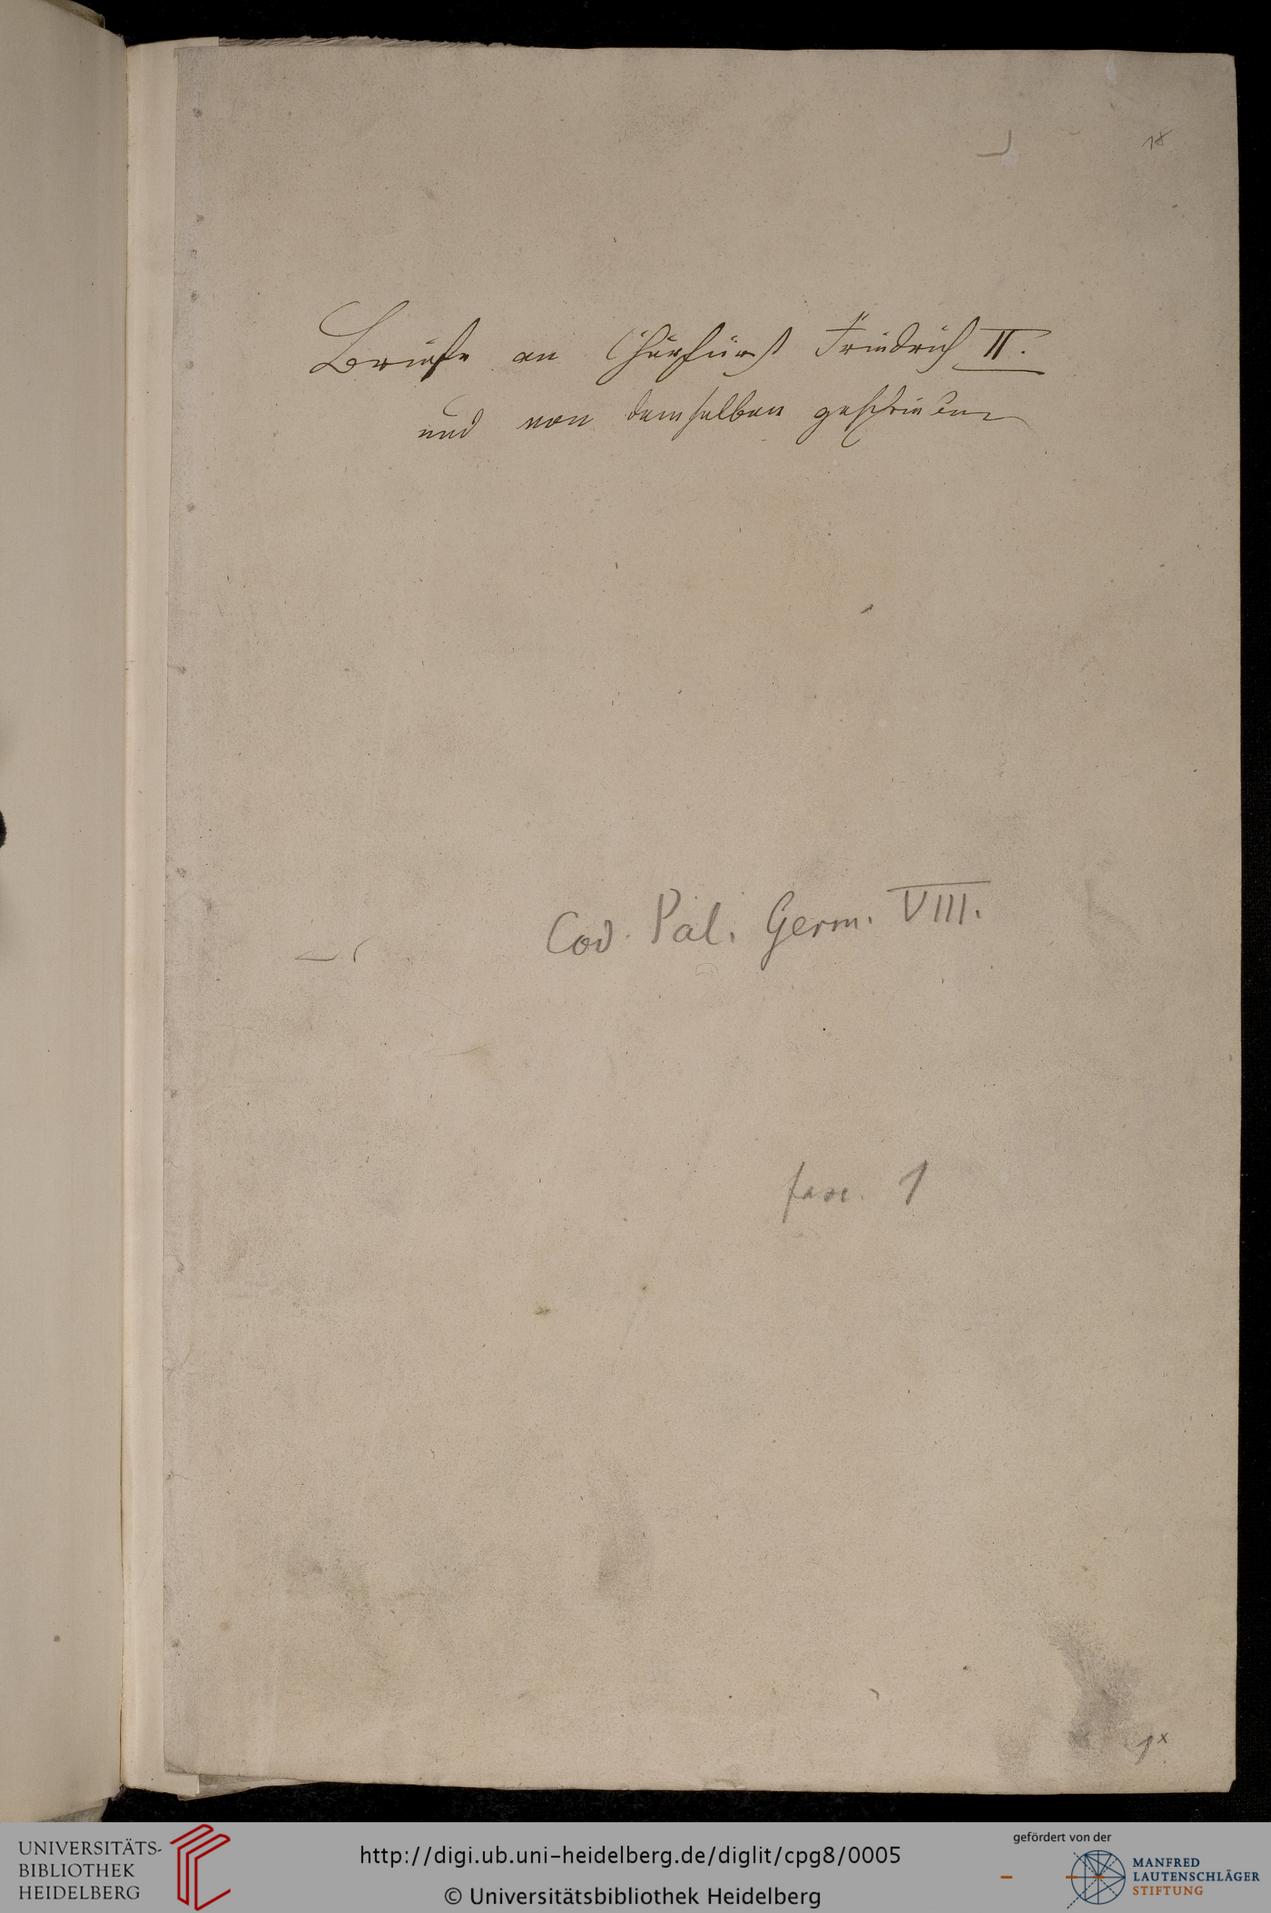 1*
Briefe an Churfürst Friedrich II.
und von demselben geschrieben
Cod. Pal. Germ. VIII.
fasc. 1
1x
UNIVERSITÄTS-
BIBLIOTHEK
HEIDELBERG
http://digi.ub.uni-heidelberg.de/diglit/cpg8/0005
© Universitätsbibliothek Heidelberg
gefördert von der
MANFRED
LAUTENSCHLÄGER
STIFTUNG